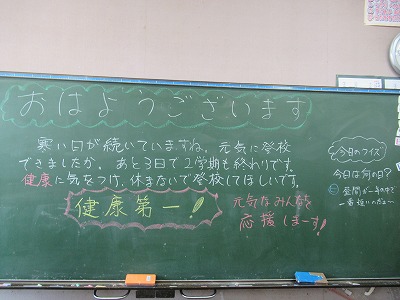 おはようございます
寒い日が続いていますね。元気に登校
できましたか。あと3日で2学期も終わりです。
健康に気をつけ、休まないで登校してほしいです。
健康第一!
元気なみんなを
応援しまーす!
今日のクイズ
今日は何の日?
昼間が一年の中で
一番短いのは〜